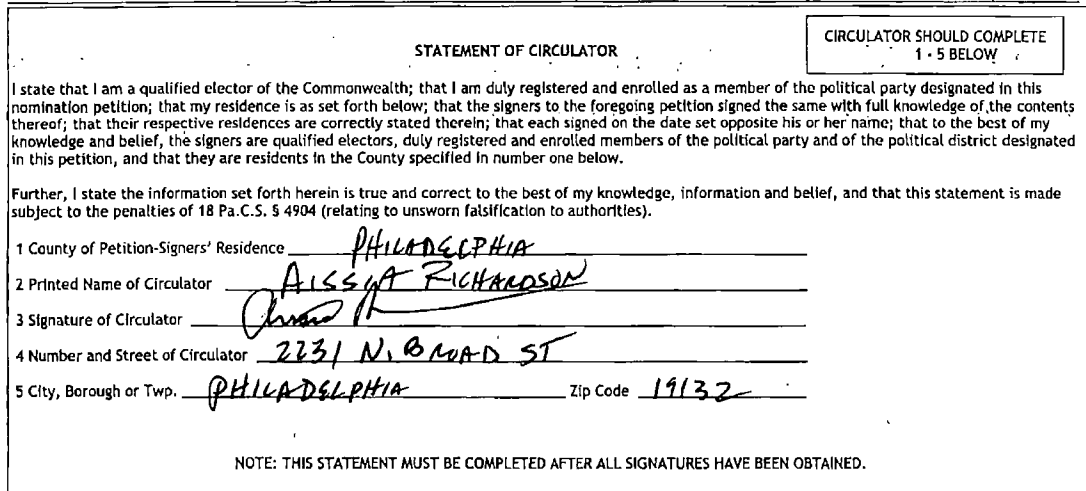 STATEMENT OF CIRCULATOR
CIRCULATOR SHOULD COMPLETE
1 - 5 BELOW
I state that I am a qualified elector of the Commonwealth; that I am duly registered and enrolled as a member of the political party designated in this
nomination petition; that my residence is as set forth below; that the signers to the foregoing petition signed the same with full knowledge of the contents
thereof; that their respective residences are correctly stated therein; that each signed on the date set opposite his or her name; that to the best of my
knowledge and belief, the signers are qualified electors, duly registered and enrolled members of the political party and of the political district designated
in this petition, and that they are residents in the County specified in number one below.
Further, I state the information set forth herein is true and correct to the best of my knowledge, information and belief, and that this statement is made
subject to the penalties of 18 Pa.C.S. § 4904 (relating to unsworn falsification to authorities).
1 County of Petition-Signers' Residence PHILADELPHIA
2 Printed Name of Circulator AISSIA RICHARDSON
3 Signature of Circulator
4 Number and Street of Circulator 2231 N. BROAD ST
5 City, Borough or Twp. PHILADELPHIA Zip Code 19132
NOTE: THIS STATEMENT MUST BE COMPLETED AFTER ALL SIGNATURES HAVE BEEN OBTAINED.